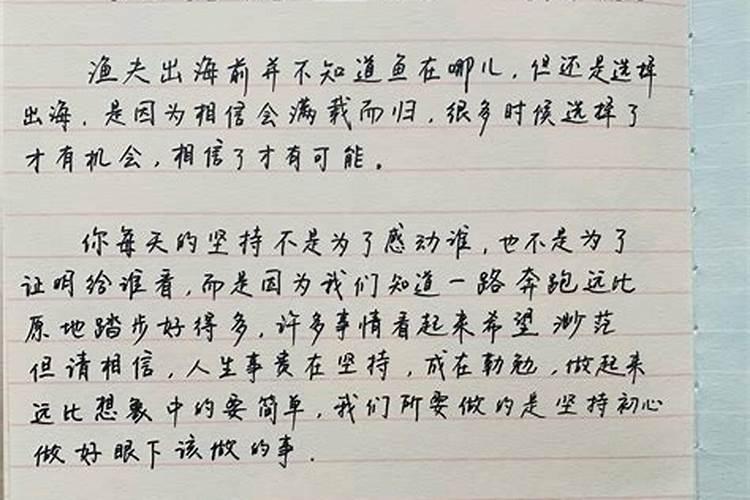 渔夫出海前并不知道鱼在哪儿，但还是选择
出海，是因为相信会满载而归，很多时候选择了
才有机会，相信了才有可能。
你每天的坚持不是为了感动谁，也不是为了
证明给谁看，而是因为我们知道一路奔跑远比
原地踏步好得多，许多事情看起来希望渺茫
但请相信，人生事贵在坚持，成在勤勉，做起来
远比想象中的要简单，我们所要做的是坚持初心
做好眼下该做的事．